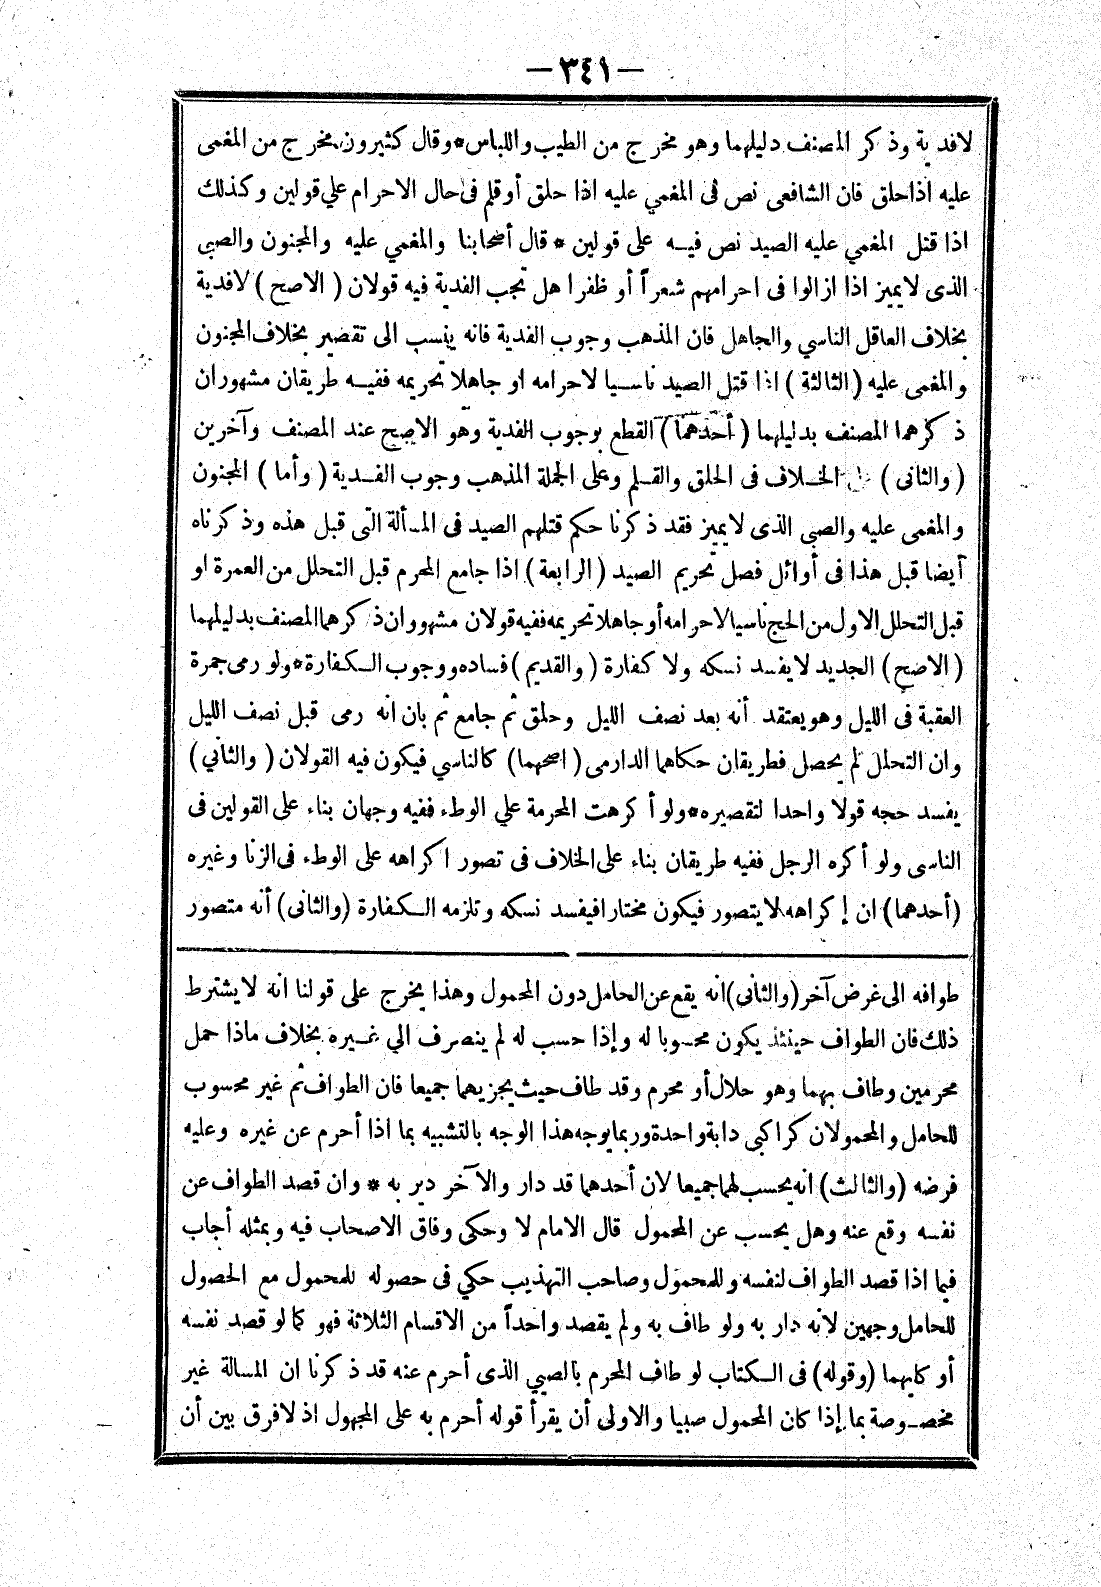 — ٣٤١ —
لا فدية وذكر المصنف دليلهما وهو مخرج من الطيب واللباس * وقال كثيرون مخرج من المغمى
عليه اذا حلق فان الشافعى نص فى المغمي عليه اذا حلق أو قلم فى حال الاحرام علي قولين وكذلك
اذا قتل المغمي عليه الصيد نص فيه على قولين * قال أصحابنا والمغمي عليه والمجنون والصبى
الذى لا يميز اذا ازالوا فى احرامهم شعراً أو ظفرا هل تجب الفدية فيه قولان ( الاصح ) لا فدية
بخلاف العاقل الناسي والجاهل فان المذهب وجوب الفدية فانه ينسب الى تقصير بخلاف المجنون
والمغمى عليه ( الثالثة ) اذا قتل الصيد ناسيا لاحرامه او جاهلا تحريمه ففيه طريقان مشهوران
ذكرهما المصنف بدليلهما ( أحدهما ) القطع بوجوب الفدية وهو الاصح عند المصنف وآخرين
( والثانى ) على الخلاف فى الحلق والقلم وعلى الجملة المذهب وجوب الفدية ( وأما ) المجنون
والمغمى عليه والصبي الذى لا يميز فقد ذكرنا حكم قتلهم الصيد فى المسألة التى قبل هذه وذكرناه
أيضا قبل هذا فى أوائل فصل تحريم الصيد ( الرابعة ) اذا جامع المحرم قبل التحلل من العمرة او
قبل التحلل الاول من الحج ناسيا لاحرامه أو جاهلا تحريمه ففيه قولان مشهوران ذكرهما المصنف بدليلهما
( الاصح ) الجديد لا يفسد نسكه ولا كفارة ( والقديم ) فساده ووجوب الكفارة * ولو رمى جمرة
العقبة فى الليل وهو يعتقد أنه بعد نصف الليل وحلق ثم جامع ثم بان انه رمى قبل نصف الليل
وان التحلل لم يحصل فطريقان حكاهما الدارمى ( اصحهما ) كالناسي فيكون فيه القولان ( والثاني )
يفسد حجه قولا واحدا لتقصيره * ولو أكرهت المحرمة علي الوطء ففيه وجهان بناء على القولين فى
الناسى ولو أكره الرجل ففيه طريقان بناء على الخلاف فى تصور اكراهه على الوطء فى الزنا وغيره
( أحدهما ) ان إكراهه لا يتصور فيكون مختارا فيفسد نسكه وتلزمه الكفارة ( والثانى ) أنه متصور
طوافه الى غرض آخر ( والثانى ) انه يقع عن الحامل دون المحمول وهذا يخرج على قولنا انه لا يشترط
ذلك فان الطواف حينئذ يكون محسوبا له وإذا حسب له لم ينصرف الي غيره بخلاف ماذا حمل
محرمين وطاف بهما وهو حلال أو محرم وقد طاف حيث يجزيهما جميعا فان الطواف ثم غير محسوب
للحامل والمحمولان كراكبى دابة واحدة وربما يوجه هذا الوجه بالتشبيه بما اذا أحرم عن غيره وعليه
فرضه ( والثالث ) انه يحسب لهما جميعا لان أحدهما قد دار والآخر دير به * وان قصد الطواف عن
نفسه وقع عنه وهل يحسب عن المحمول قال الامام لا وحكى وفاق الاصحاب فيه وبمثله أجاب
فيما اذا قصد الطواف لنفسه وللمحمول وصاحب التهذيب حكي فى حصوله للمحمول مع الحصول
للحامل وجهين لانه دار به ولو طاف به ولم يقصد واحداً من الاقسام الثلاثة فهو كما لو قصد نفسه
أو كليهما ( وقوله ) فى الكتاب لو طاف المحرم بالصبي الذى أحرم عنه قد ذكرنا ان المسالة غير
مخصوصة بما إذا كان المحمول صبيا والاولى أن يقرأ قوله أحرم به على المجهول اذ لا فرق بين أن